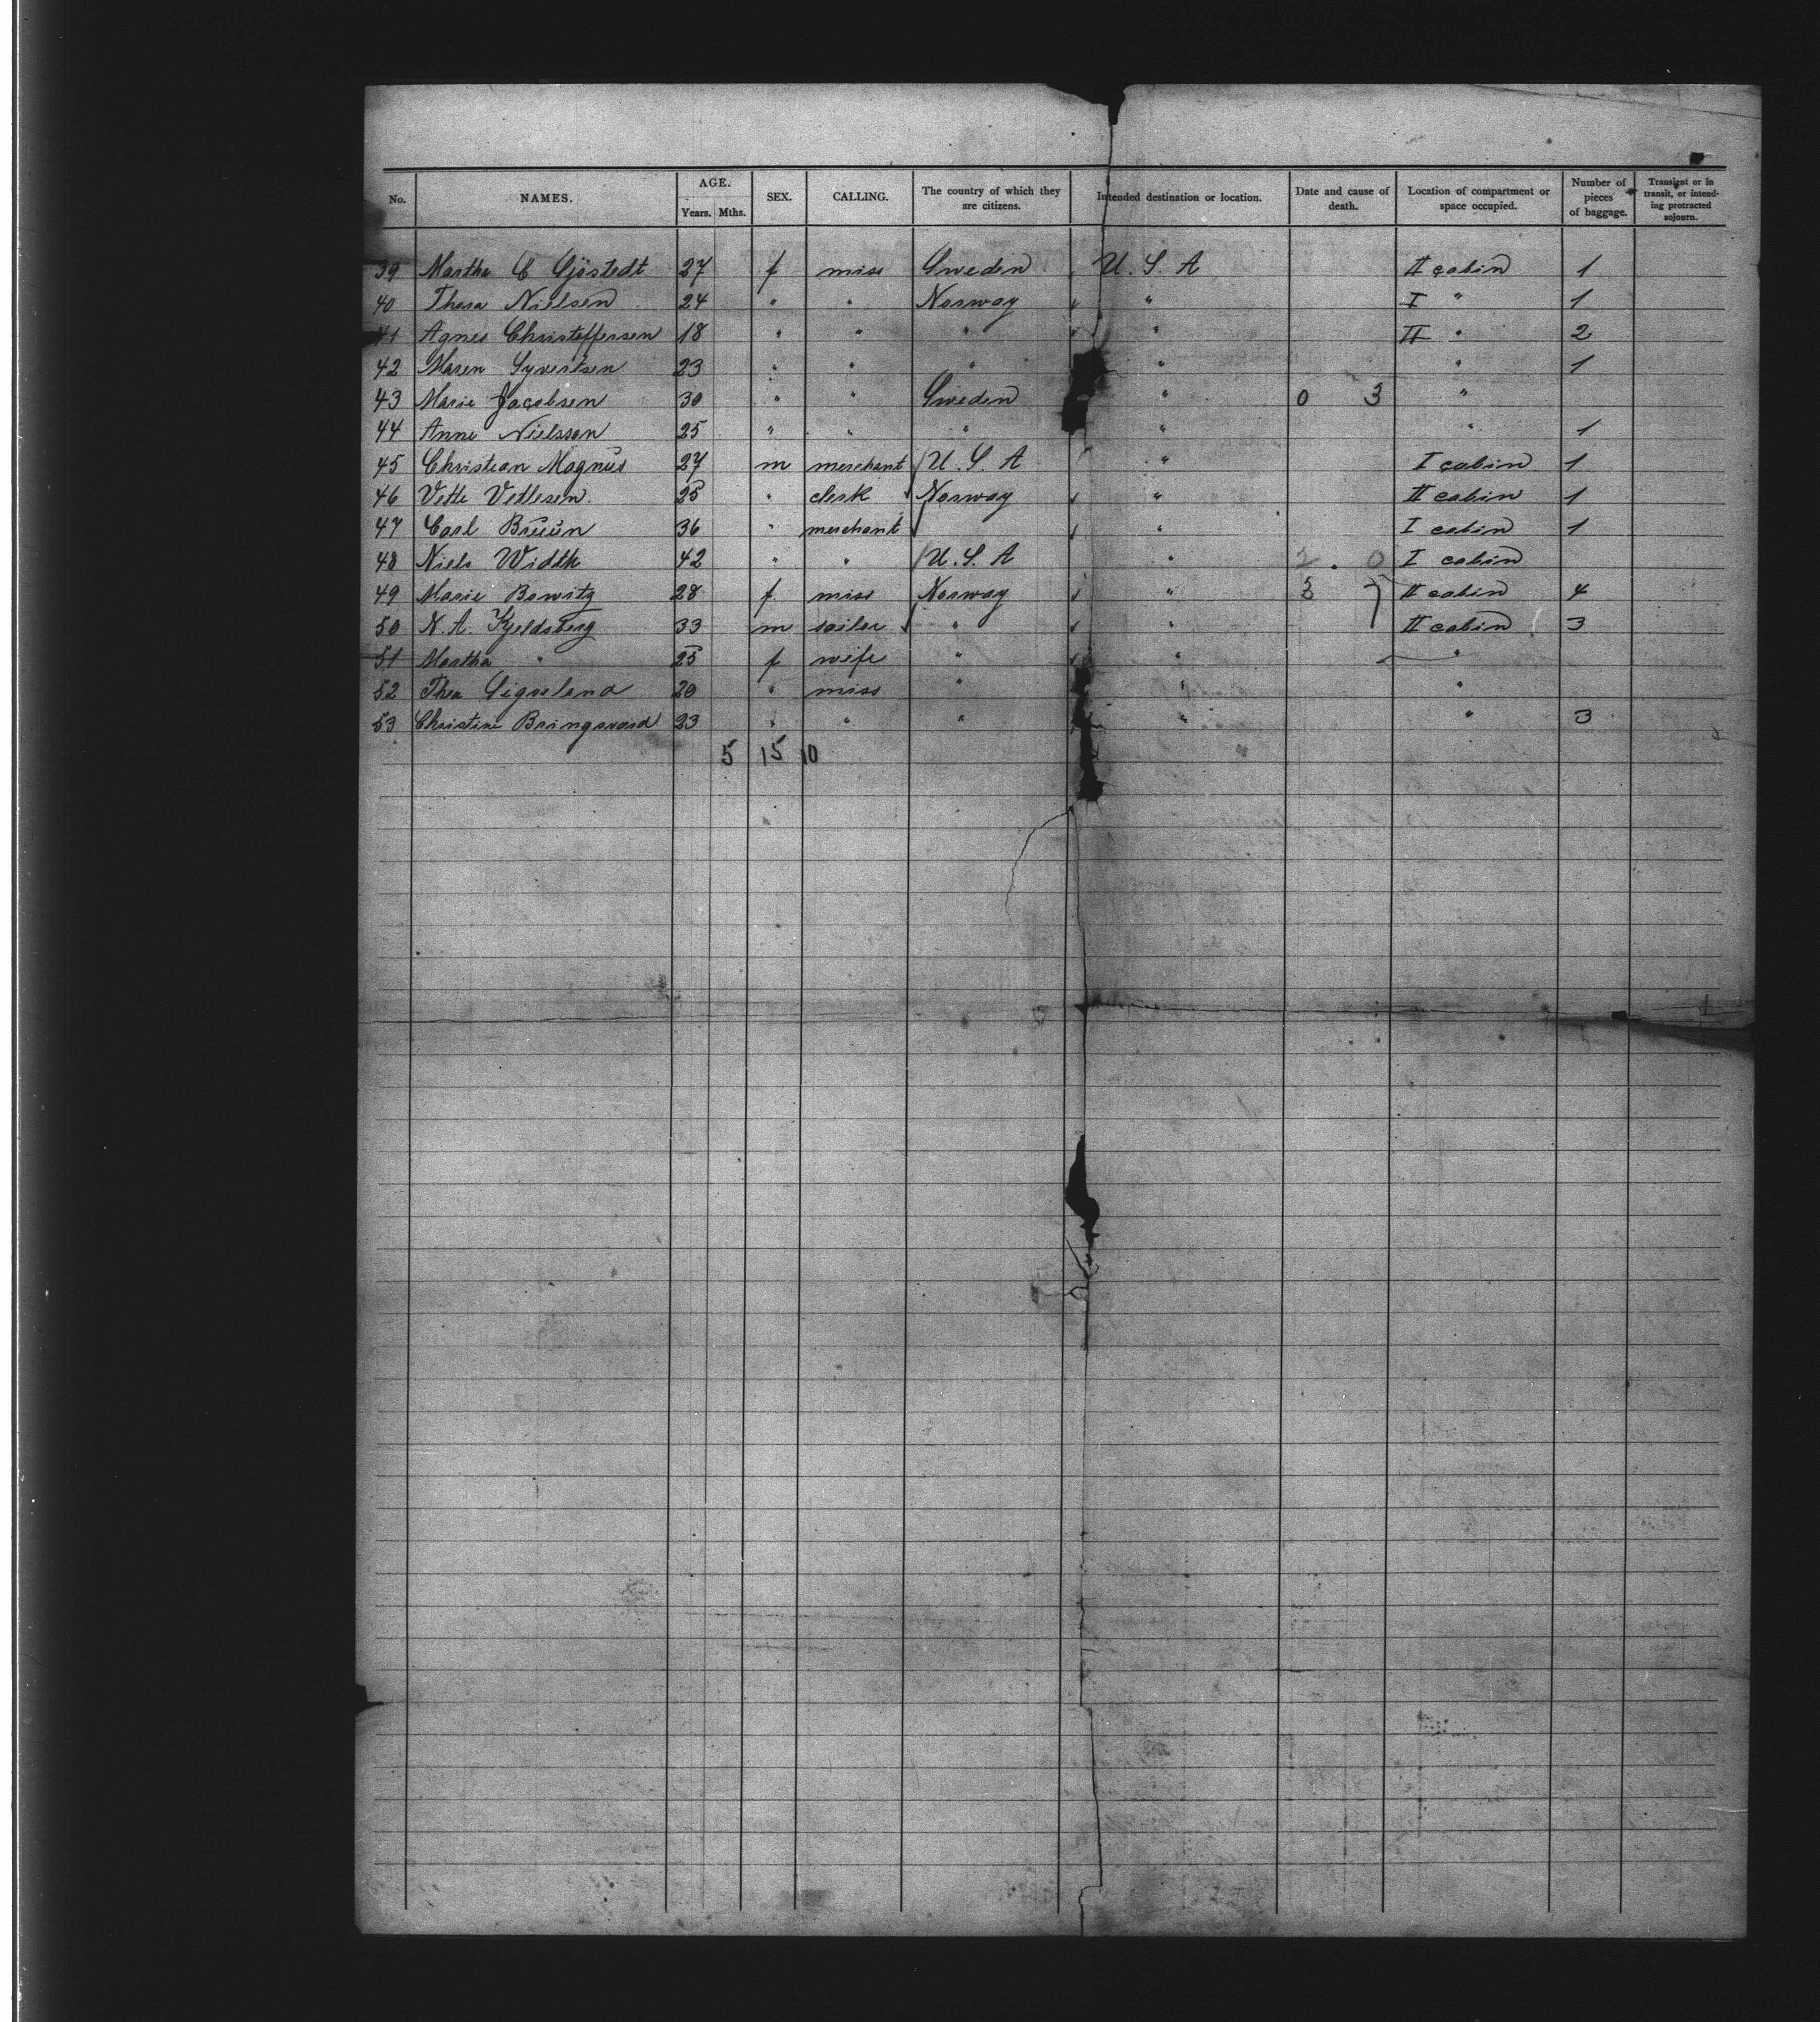 No. NAMES. AGE. Years. Mths. SEX. CALLING. The country of which they are citizens. Intended destination or location. Date and cause of death. Location of compartment or space occupied. Number of pieces of baggage. Transient or in transit, or intending protracted sojourn.
39 Martha C Sjöstedt 27 f miss Sweden U. S. A II cabin 1
40 Thora Nielsen 24 " " Norway " I " 1
41 Agnes Christoffersen 18 " " " " II " 2
42 Maren Syvertsen 23 " " " " " 1
43 Marie Jacobsen 30 " " Sweden " 0 3 "
44 Anne Nielsson 25 " " " " " 1
45 Christian Magnus 27 m merchant U. S. A " I cabin 1
46 Vetle Vetlesen 25 " clerk Norway " II cabin 1
47 Carl Bruun 36 " merchant " I cabin 1
48 Niels Width 42 " " U. S. A " 2. 0 I cabin
49 Marie Bowitz 28 f miss Norway " 3 7 II cabin 4
50 N. A. Kjeldsberg 33 m sailor " " II cabin 3
51 Martha " 25 f wife " " "
52 Thea Sigveland 20 " miss " " "
53 Christine Bringsvard 23 " " " " " 3
5 15 10